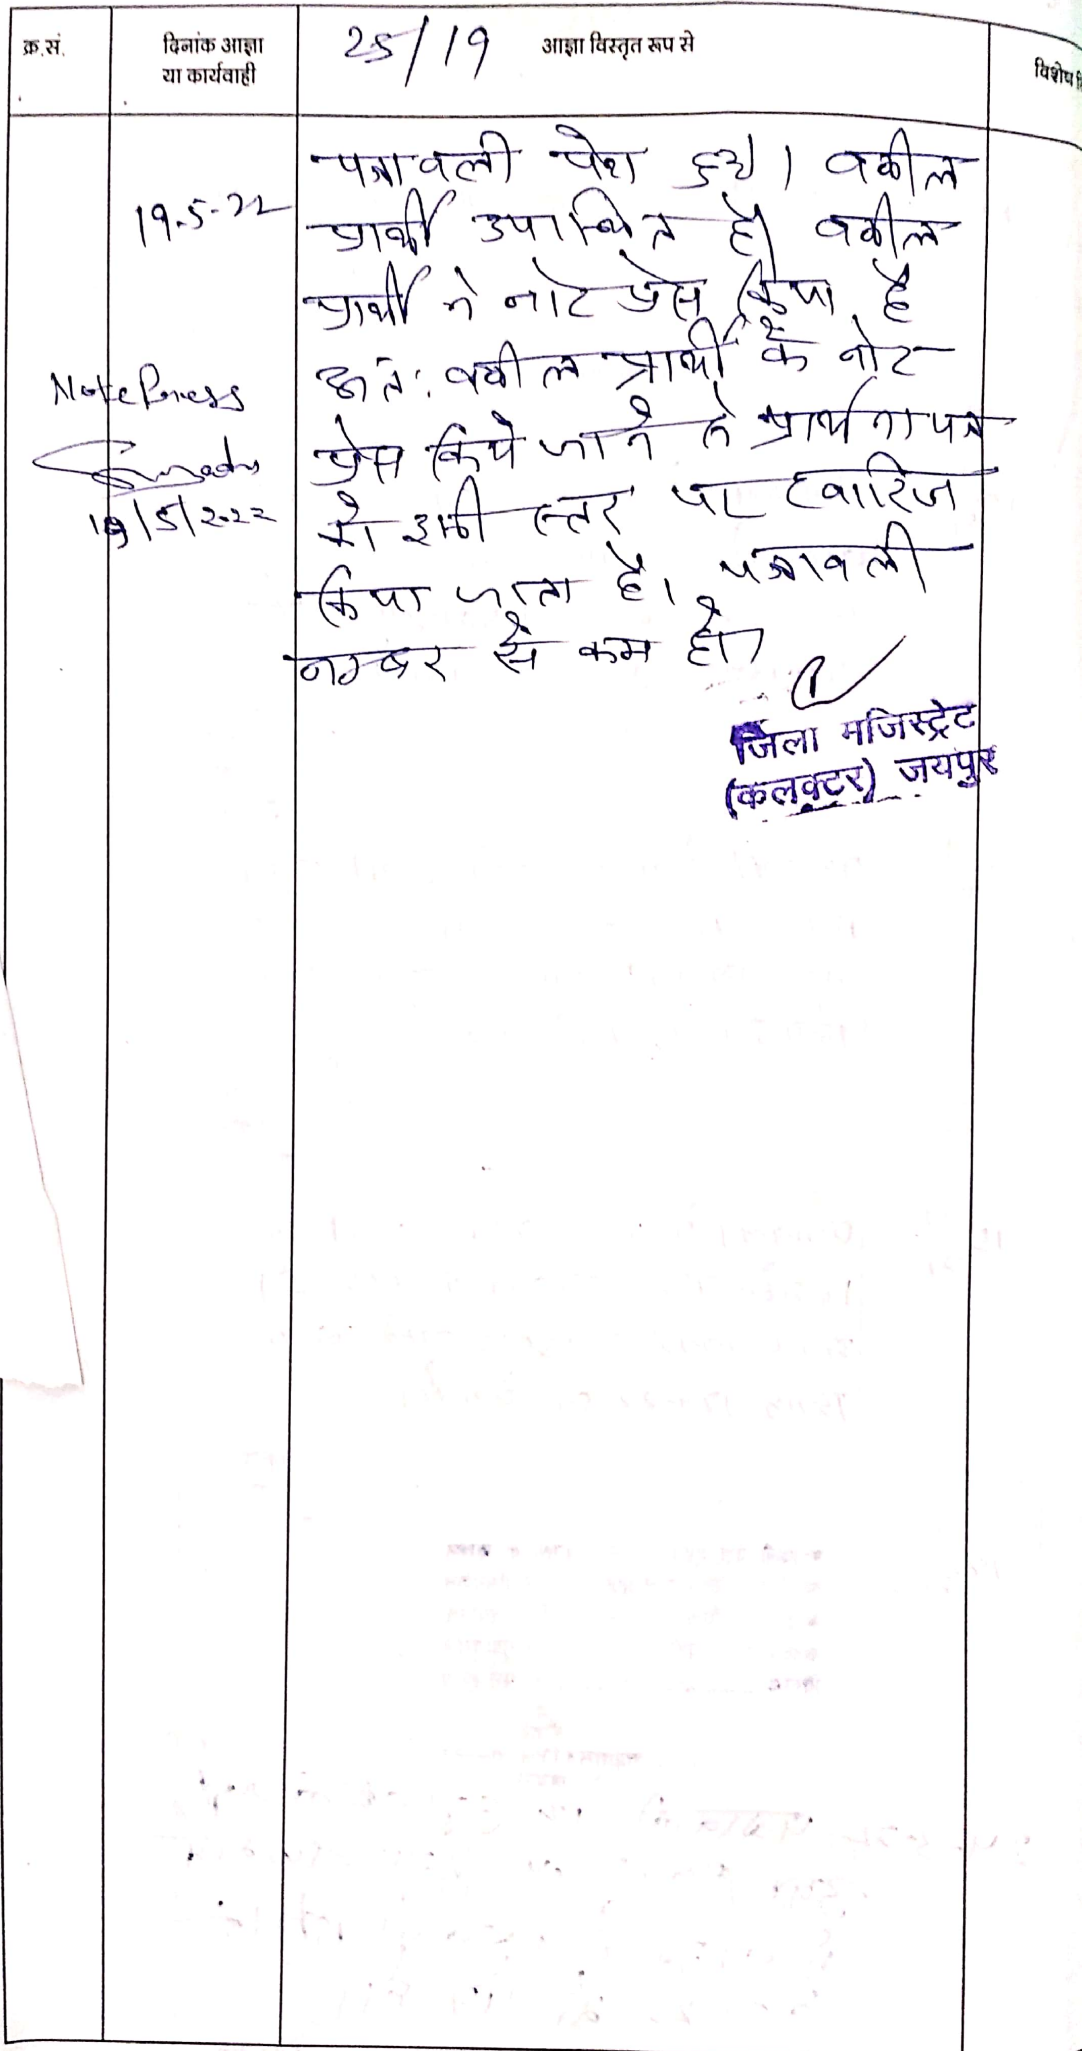 क्र.सं.
दिनांक आज्ञा
या कार्यवाही
25/19
आज्ञा विस्तृत रूप से
विशेष
19-5-22
पत्रावली पेश हुयी। वकील
प्रार्थी उपस्थित है। वकील
प्रार्थी ने नोट प्रेस किया है
अतः वकील प्रार्थी के नोट
प्रेस किये जाने से प्रार्थना पत्र
को इसी स्तर पर खारिज
किया जाता है। पत्रावली
नम्बर से कम हो।
Note Press
19/5/2022
जिला मजिस्ट्रेट
(कलक्टर) जयपुर